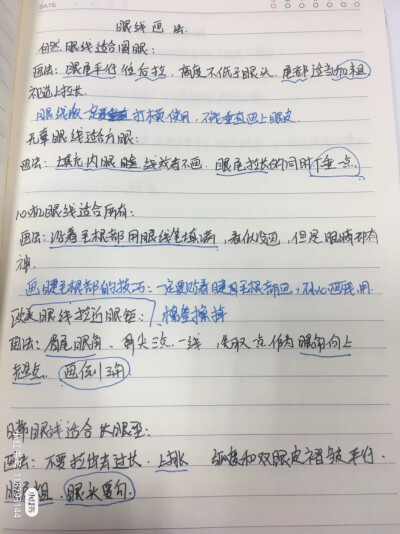 DATE
眼线画法
自然眼线适合圆眼:
画法: 眼尾平行位后拉, 高度不低于眼头, 尾部适当加粗
和适上拉长.
眼线液一定要打横使用, 不能垂直画上眼皮.
无辜眼线适合方眼:
画法: 填充内眼睑线或者不画. 眼尾拉长的同时下垂一点
心机眼线适合所有:
画法: 沿着毛根部用眼线笔填满, 看似没画, 但是眼睛却有
神.
画睫毛根部的技巧: 一定要贴着睫毛根部画,
欧美眼线拉近眼距: 棉签擦掉
画法: 眉尾 眼角. 一线, 眼角向上
起点. 画倒三角
日常眼线适合长眼型:
画法: 不要拉出去过长. 上扬 弧度和双眼皮褶皱平行.
眼尾粗. 眼头要勾.
小红书